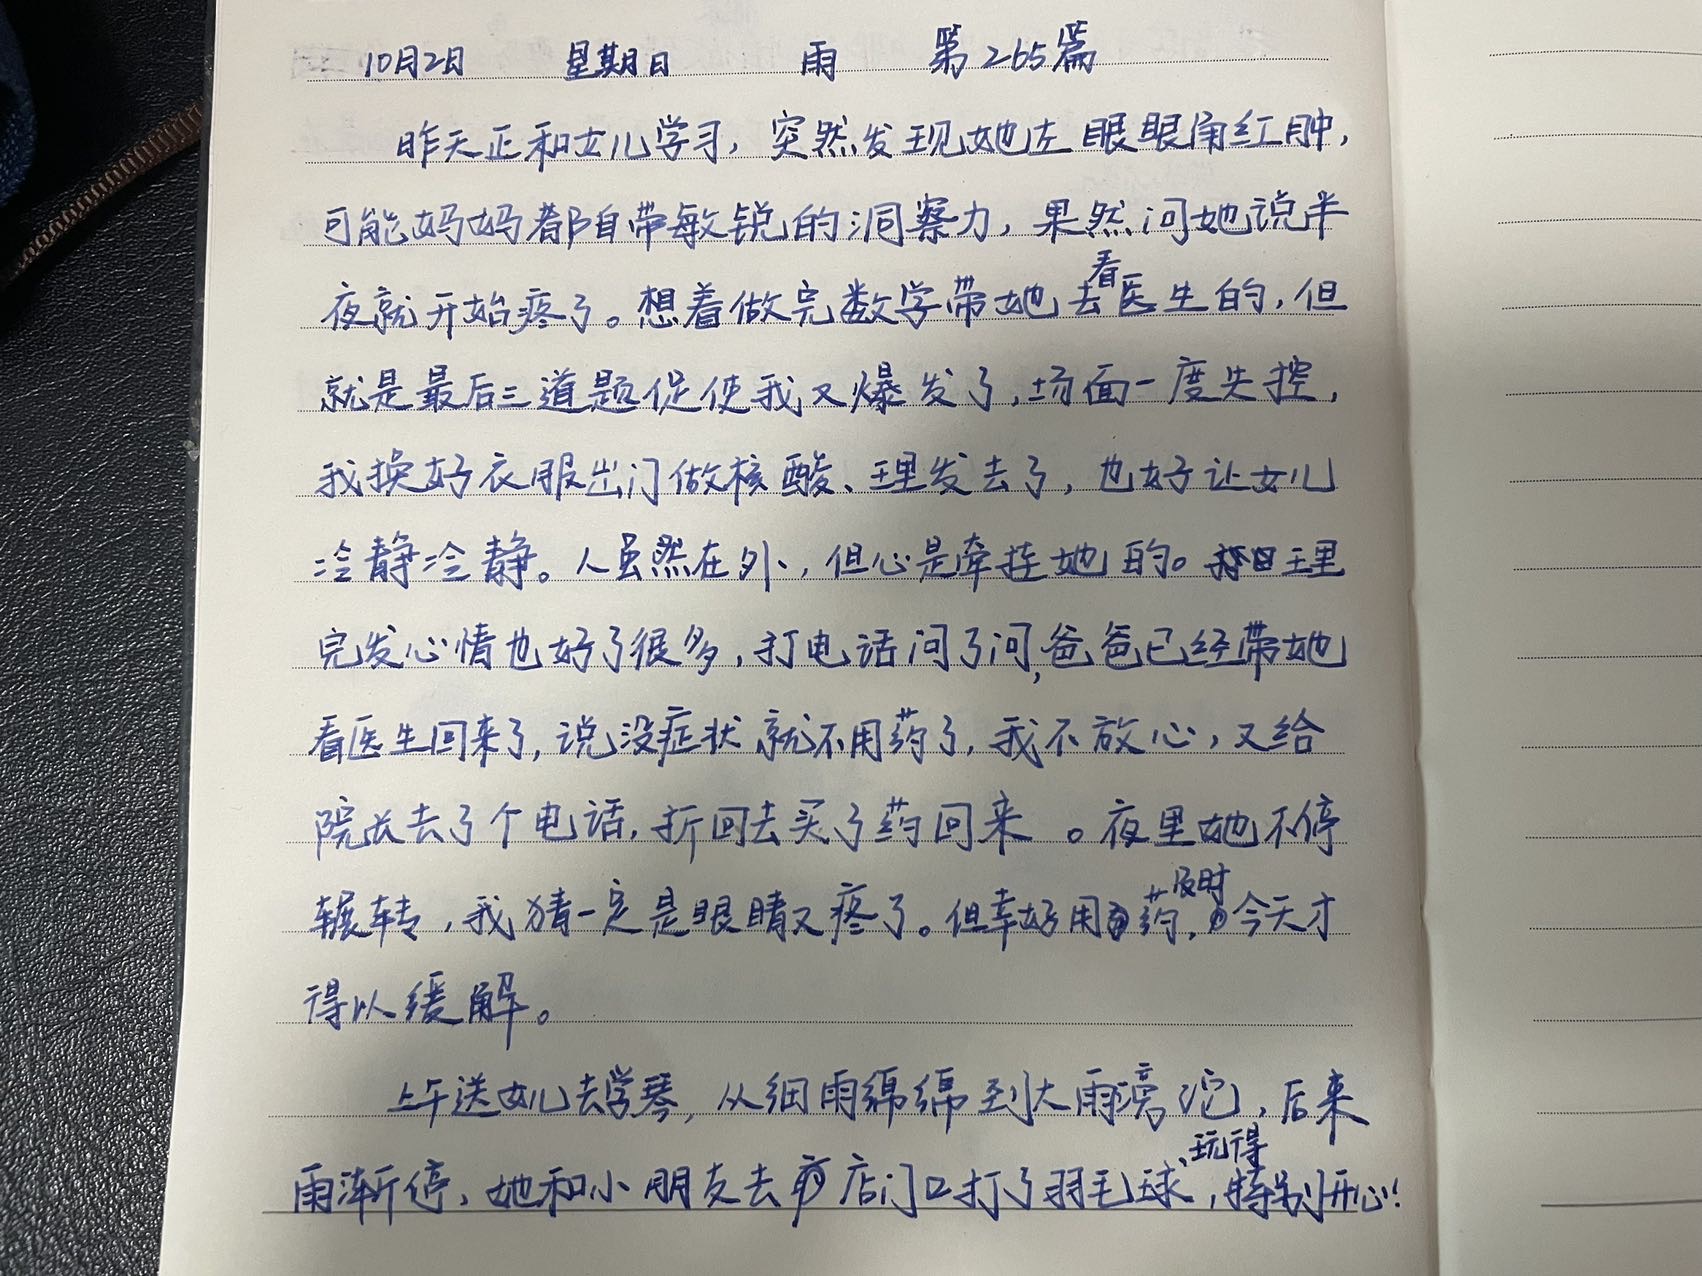 10月2日 星期日 雨 第265篇
昨天正和女儿学习，突然发现她左眼眼角红肿，
可能妈妈都自带敏锐的洞察力，果然问她说半
夜就开始疼了。想着做完数学带她去看医生的，但
就是最后三道题促使我又爆发了，场面一度失控，
我换好衣服出门做核酸、理发去了，也好让女儿
冷静冷静。人虽然在外，但心是牵挂她的。理
完发心情也好了很多，打电话问了问，爸爸已经带她
看医生回来了，说没症状就不用药了，我不放心，又给
院长去了个电话，折回去买了药回来。夜里她不停
辗转，我猜一定是眼睛又疼了。但幸好用药及时，今天才
得以缓解。
上午送女儿去学琴，从细雨绵绵到大雨滂沱，后来
雨渐停，她和小朋友去店门口打了羽毛球，玩得特别开心！